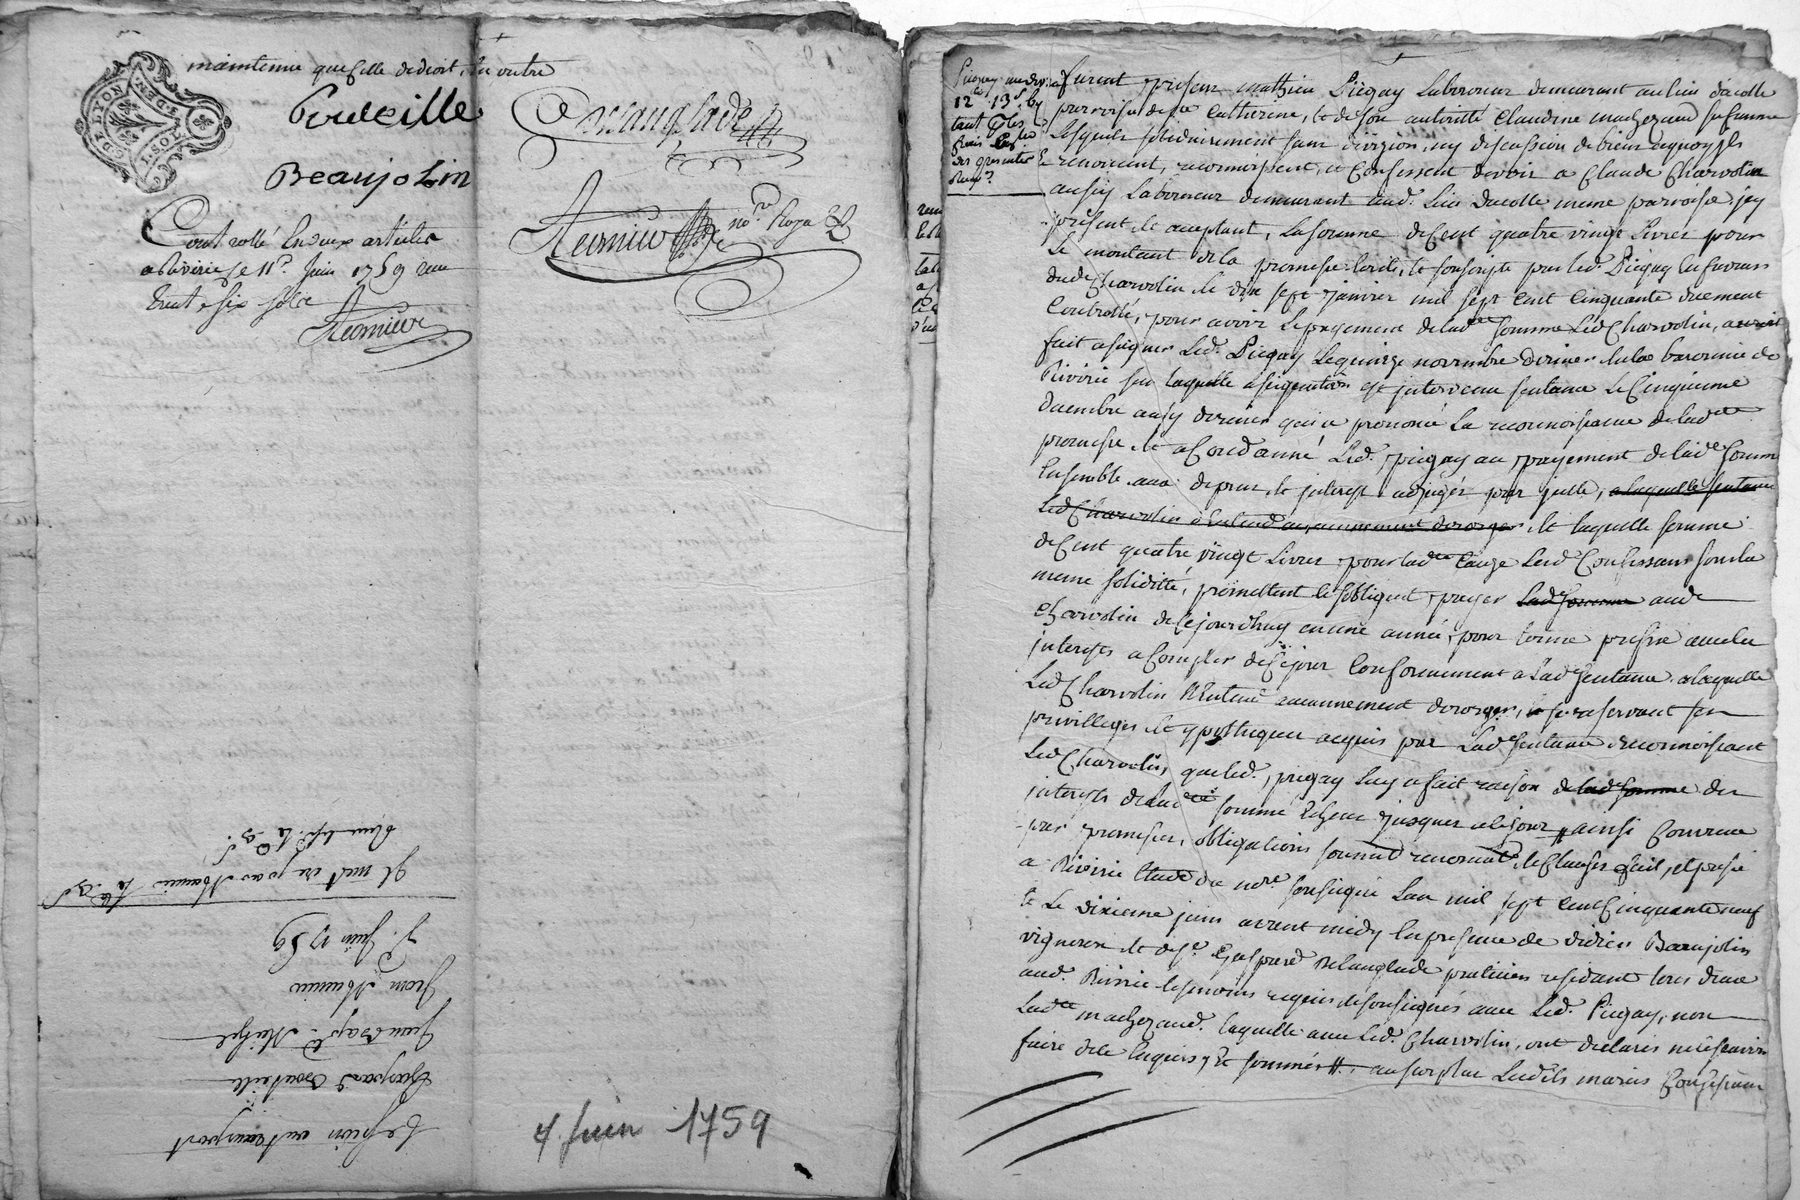 maintenue que elle de droit, en outre
Bouteille
Beaujolin
GDE LYON
DEN.
I.SOL
Delanglade
Controllé en deux articles
a Riverie le 11e. Juin 1759 reçu
trent six sols
Fleurnieux
no.re Royal
Jean
Juin 1759
4 Juin 1759
12 13s.
tant
frais
des presentes
Furent presens Mathieu Piegay Laboureur demeurant au lieu dacolle
parroisse de Ste Catherine, et de son autoritté Claudine machezaud sa femme
Lesquels solidairement sans division, ny discussion de biens a quoy ils
renoncent, reconnoissent, et Confessent devoir a Claude Charvolin
aussy Laboureur demeurant aud. Lieu dacolle meme parroisse jcy
présent et acceptant, La somme de Cent quatre vingt Livres pour
Le montant de la promesse ecrite, et souscripte par led. Piegay en faveur
dud. Charvolin le dix sept janvier mil sept cent cinquante duement
Controllé, pour avoir Le payement de lad.te somme Led Charvolin, auroit
fait assigner Led. Piegay Le quinze novembre dernier en la baronnie de
Riverie sur laquelle assignation est intervenu sentence Le Cinquieme
decembre aussy dernier qui a prononcé La reconnoissance de lad.te
promesse et a Condanné Led. piegay au payement de lad.te somme
Ensemble aux depens, et interest adjugés par icelle, a laquelle sentence
Led Charvolin n'entend aucunement deroger, et laquelle somme
de Cent quatre vingt Livres pour lad.te Cauze Lesd. Confessans sous la
meme solidité, promettent et s'obligent, payer Lad. somme aud.
Charvolin de Cejourdhuy en une année, pour terme prefix avec les
interests a Compter de Ce jour Conformement a lad. sentence a laquelle
Led Charvolin N'entend aucunement deroger, se reservant ses
privilleges et ypotheques acquis par Lad. sentence reconnoissant
Led Charvolin, que led. piegay luy a fait raison de lad. somme des
interests de lad.te somme echeue jusques a ce jour, ainsi Convenu
par promesses, obligations soumis.ons renonciat.ons et Clauses fait, et passé
a Riverie Etude du no.re soussigné Lan mil sept cent Cinquante neuf
et Le dixieme juin avant midy En presence de didier Beaujolin
vigneron et de Sr. Gaspard Delanglade praticien residant tous deux
aud. Riverie temoins requis et soussignés avec Led. Piegay, non
Lad.te machezaud. laquelle avec Led. Charvolin, ont declarés ne le scavoir
faire de ce enquis, et sommés. au surplus Lesdits mariés Confessans